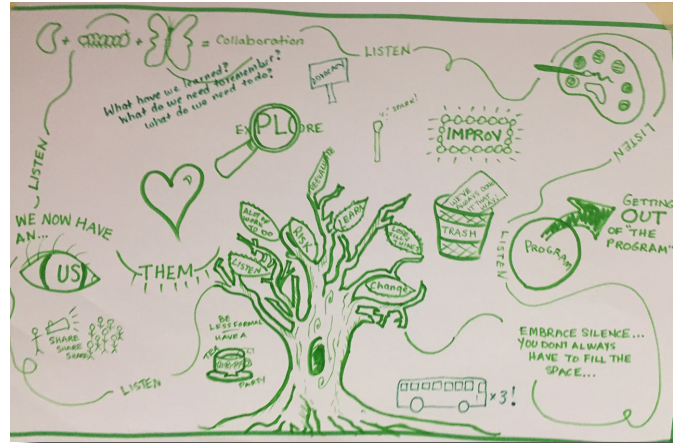 + + = Collaboration
LISTEN
What have we learned?
What do we need to remember?
What do we need to do?
ADVOCACY
EXPLORE
"SPARK!
IMPROV
LISTEN
LISTEN
WE NOW HAVE
AN...
US
THEM
REEVALUATE
LEARN
RISK
A LOT OF
WORK
TO DO
LISTEN
Change
WE'VE
ALWAYS DONE
IT THAT
WAY!
TRASH
LISTEN
PROGRAM
GETTING
OUT
OF "THE
PROGRAM"
SHARE
SHARE
SHARE
LISTEN
BE
LESS FORMAL
HAVE A
TEA
PARTY
x3!
EMBRACE SILENCE...
YOU DONT ALWAYS
HAVE TO FILL THE
SPACE...